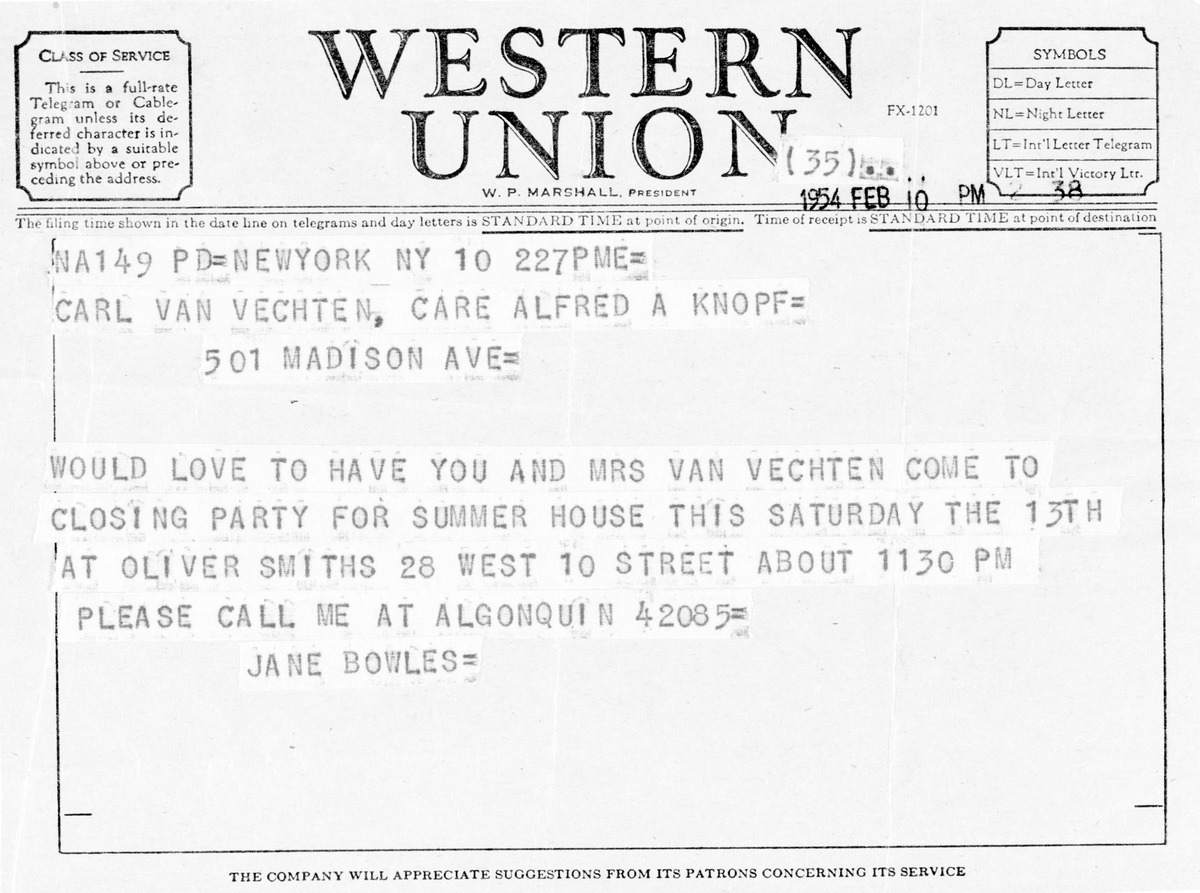 CLASS OF SERVICE
This is a full-rate
Telegram or Cable-
gram unless its de-
ferred character is in-
dicated by a suitable
symbol above or pre-
ceding the address.
WESTERN
UNION
W. P. MARSHALL, PRESIDENT
FX-1201
(35)..
SYMBOLS
DL=Day Letter
NL=Night Letter
LT=Int'l Letter Telegram
VLT=Int'l Victory Ltr.
1954 FEB 10 PM 2 38
The filing time shown in the date line on telegrams and day letters is STANDARD TIME at point of origin. Time of receipt is STANDARD TIME at point of destination
NA149 PD=NEWYORK NY 10 227PME=
CARL VAN VECHTEN, CARE ALFRED A KNOPF=
501 MADISON AVE=
WOULD LOVE TO HAVE YOU AND MRS VAN VECHTEN COME TO
CLOSING PARTY FOR SUMMER HOUSE THIS SATURDAY THE 13TH
AT OLIVER SMITHS 28 WEST 10 STREET ABOUT 1130 PM
PLEASE CALL ME AT ALGONQUIN 42085=
JANE BOWLES=
THE COMPANY WILL APPRECIATE SUGGESTIONS FROM ITS PATRONS CONCERNING ITS SERVICE